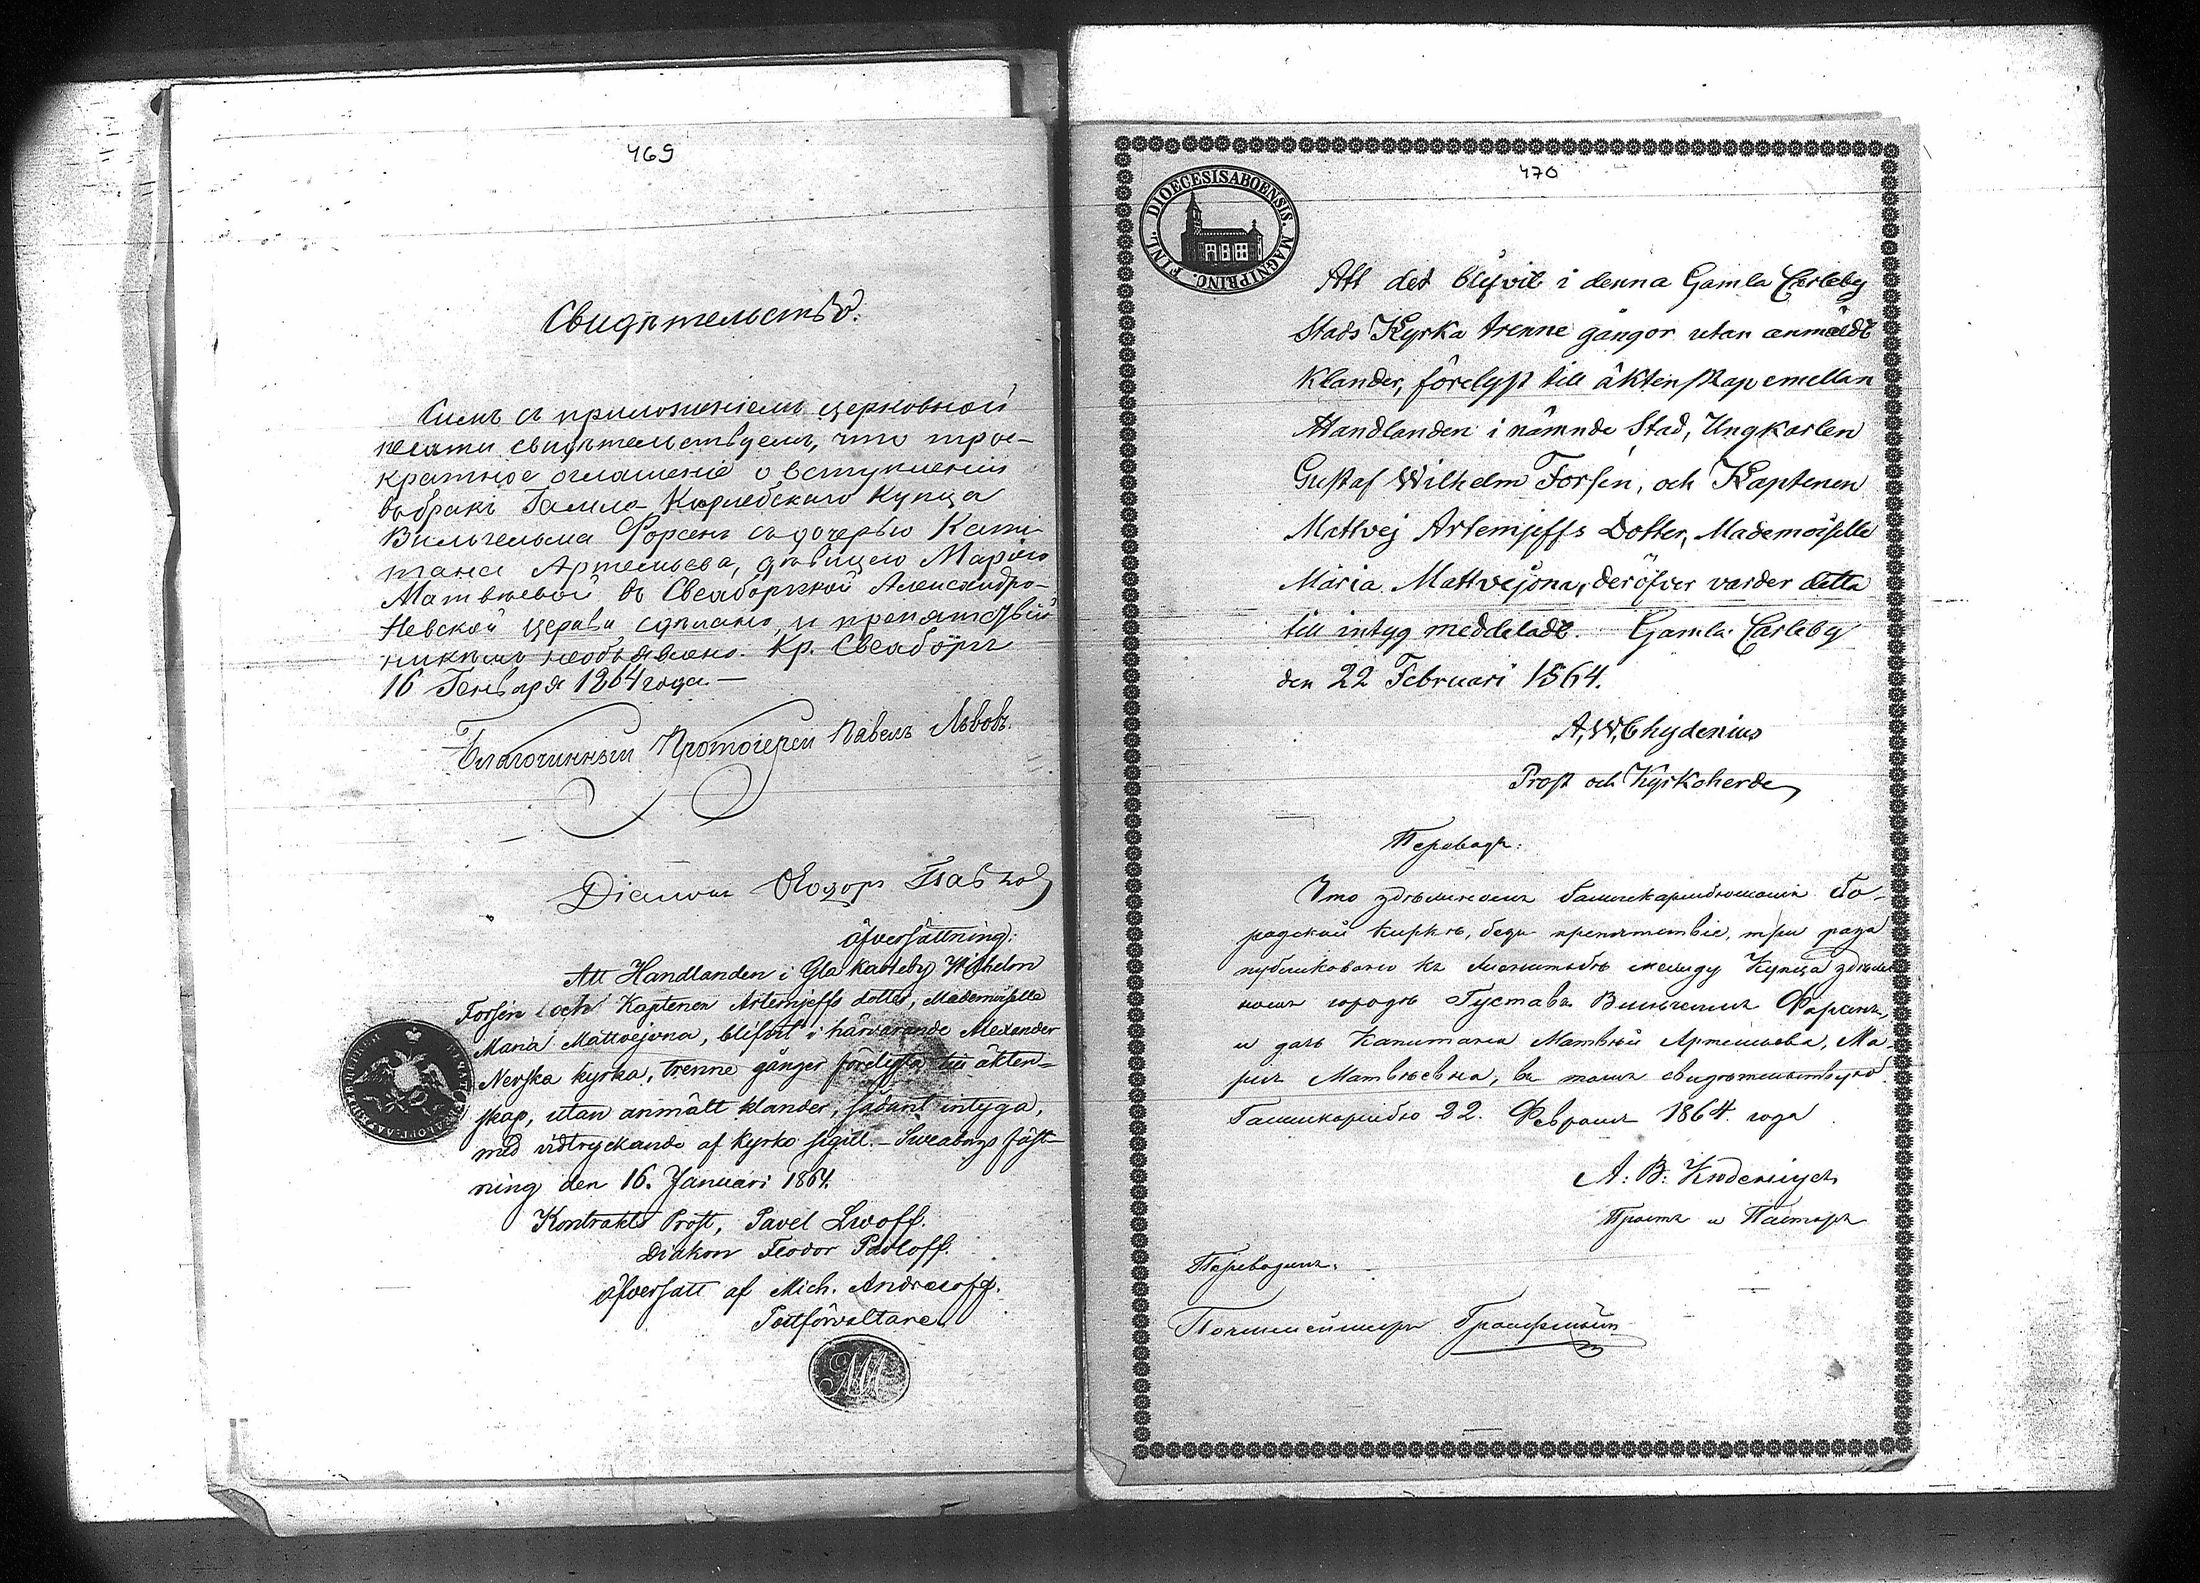 469
Свидѣтельство.
Симъ съ приложеніемъ церковной
печати свидѣтельствуемъ, что трое-
кратное оглашеніе о вступленіи
въ бракъ Гамла-Карлебскаго Купца
Вильгельма Форсенъ съ дочерью Капи-
тана Артемьева, дѣвицею Маріею
Матвѣевой въ Свеаборгской Александро-
Невской церкви сдѣлано, и препятствій
никѣмъ необъявлено. Кр. Свеаборгъ
16 Генваря 1864 года.—
Благочинный Протоіерей Павелъ Львовъ.
Діаконъ Ѳеодоръ Павловъ
öfversättning:
Att Handlanden i Gla Karleby Wilhelm
Forsén och Kaptenen Artemjeffs dotter, Mademoiselle
Maria Mattvejevna, blifvit i härvarande Alexander
Nevska kyrka, trenne gånger förelysta till äkten-
skap, utan anmält klander, sådant intyga,
med vidtryckande af Kyrko sigill.— Sweaborgs fäst-
ning den 16. Januari 1864.
Kontrakts Prost, Pavel Lwoff.
Diakon Feodor Pavloff.
öfversatt af Mich. Andreieff.
Postförvaltare
MA
470
DIOECESIS ABOENSIS. MAGNI PRINC. FINL.
Att det blifvit i denna Gamla Carleby
Stads Kyrka trenne gångor utan anmäldt
Klander, förelyst till äktenskap emellan
Handlanden i nämnde Stad, Ungkarlen
Gustaf Wilhelm Forsén, och Kaptenen
Mattvej Artemjeffs Dotter, Mademoiselle
Maria Mattvejona, deröfver varder detta
till intyg meddeladt. Gamla Carleby
den 22 Februari 1864.
A. W. Chydenius
Prost och Kyrkoherde
Переводъ:
Что здѣшнемъ Гамлекарлебюшашъ Го-
родской Киркѣ, безъ препятствіе, три раза
публиковано къ женитьбѣ между Купца здѣш-
номъ городѣ Густавъ Вильгелмъ Форсенъ,
и дочь Капитана Матвѣй Артемьева, Ма-
рія Матвѣевна, въ томъ свидѣтельствую.
Гамлекарлебю 22. Февраля 1864. года
А: В: Хюдениусъ
Простъ и Пасторъ
Переводилъ:
Почтмейстеръ